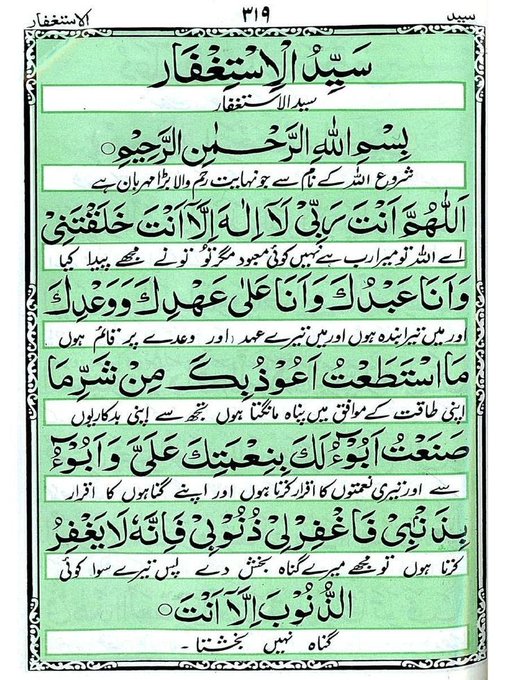 سید ۳۱۹ الاستغفار
سَيِّدُ الْاِسْتِغْفَار
سید الاستغفار
بِسْمِ اللهِ الرَّحْمٰنِ الرَّحِيْمِ○
شروع اللہ کے نام سے جو نہایت رحم والا بڑا مہربان ہے
اَللّٰهُمَّ اَنْتَ رَبِّىْ لَآ اِلٰهَ اِلَّآ اَنْتَ خَلَقْتَنِىْ
اے اللہ تو میرا رب ہے نہیں کوئی معبود مگر تو تو نے مجھے پیدا کیا
وَاَنَا عَبْدُكَ وَاَنَا عَلٰى عَهْدِكَ وَوَعْدِكَ
اور میں تیرا بندہ ہوں اور میں تیرے عہد اور وعدے پر قائم ہوں
مَا اسْتَطَعْتُ اَعُوْذُ بِكَ مِنْ شَرِّ مَا
اپنی طاقت کے موافق میں پناہ مانگتا ہوں تجھ سے اپنی بدکاریوں
صَنَعْتُ اَبُوْٓءُ لَكَ بِنِعْمَتِكَ عَلَىَّ وَاَبُوْٓءُ
سے اور تیری نعمتوں کا اقرار کرتا ہوں اور اپنے گناہوں کا اقرار
بِذَنْۢبِىْ فَاغْفِرْلِىْ ذُنُوْبِىْ فَاِنَّهٗ لَا يَغْفِرُ
کرتا ہوں تو مجھے میرے گناہ بخش دے پس تیرے سوا کوئی
الذُّنُوْبَ اِلَّآ اَنْتَ○
گناہ نہیں بخشتا۔